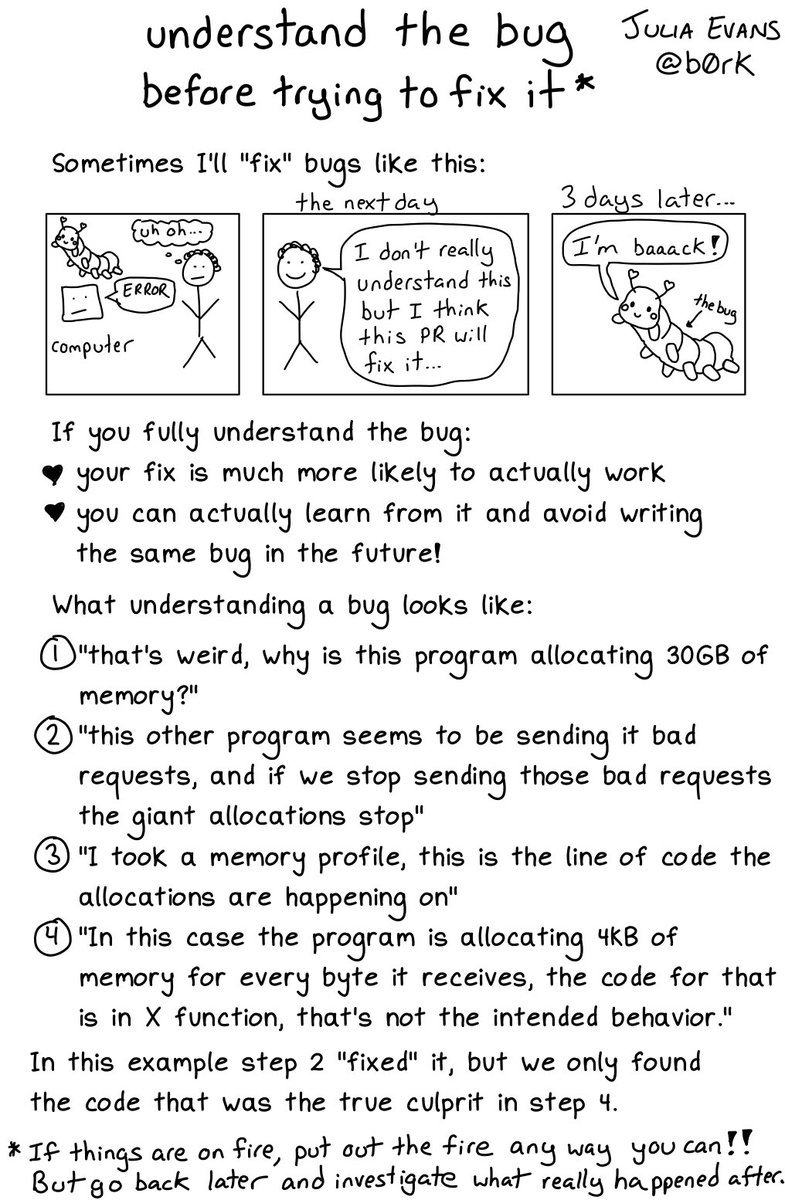 understand the bug
before trying to fix it*
JULIA EVANS
@b0rk
Sometimes I'll "fix" bugs like this:
uh oh...
ERROR
computer
the next day
I don't really
understand this
but I think
this PR will
fix it...
3 days later...
I'm baaack!
the bug
If you fully understand the bug:
♥ your fix is much more likely to actually work
♥ you can actually learn from it and avoid writing
the same bug in the future!
What understanding a bug looks like:
① "that's weird, why is this program allocating 30GB of
memory?"
② "this other program seems to be sending it bad
requests, and if we stop sending those bad requests
the giant allocations stop"
③ "I took a memory profile, this is the line of code the
allocations are happening on"
④ "In this case the program is allocating 4KB of
memory for every byte it receives, the code for that
is in X function, that's not the intended behavior."
In this example step 2 "fixed" it, but we only found
the code that was the true culprit in step 4.
* If things are on fire, put out the fire any way you can!!
But go back later and investigate what really happened after.